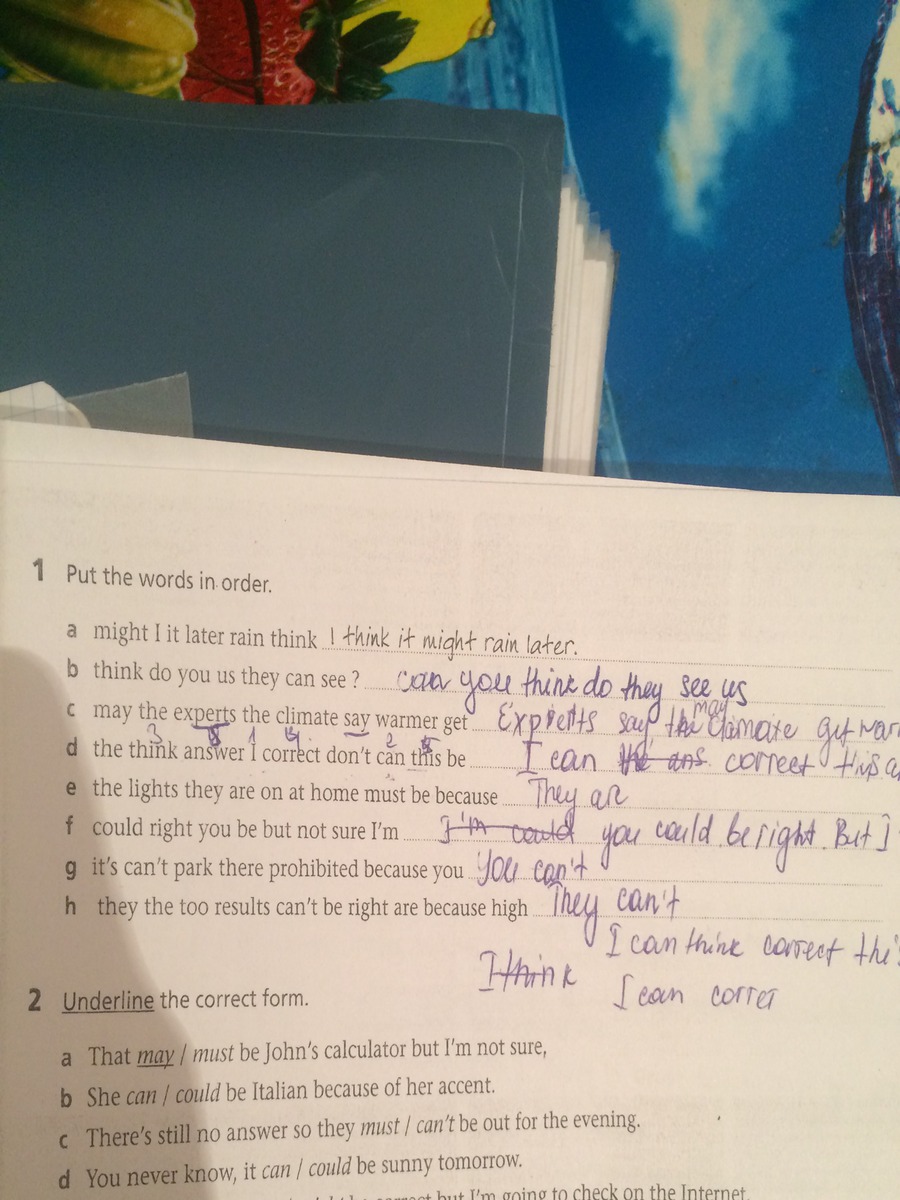 1 Put the words in order.
a might I it later rain think I think it might rain later.
b think do you us they can see ? can you think do they see us
may
c may the experts the climate say warmer get Experts say the climate get war
3 8 1 4 2 5
d the think answer I correct don't can this be I can the ans. correct this a
e the lights they are on at home must be because They ar
f could right you be but not sure I'm I'm could you could be right. But I
g it's can't park there prohibited because you You can't
h they the too results can't be right are because high They can't
I can think correct thi
I think
I can correr
2 Underline the correct form.
a That may / must be John's calculator but I'm not sure,
b She can / could be Italian because of her accent.
c There's still no answer so they must / can't be out for the evening.
d You never know, it can / could be sunny tomorrow.
but I'm going to check on the Internet.